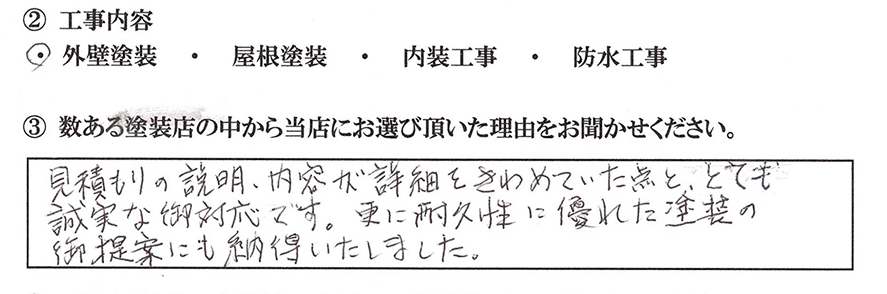 ② 工事内容
・外壁塗装 ・ 屋根塗装 ・ 内装工事 ・ 防水工事
③ 数ある塗装店の中から当店にお選び頂いた理由をお聞かせください。
見積もりの説明、内容が詳細をきわめていた点と、とても
誠実な御対応です。更に耐久性に優れた塗装の
御提案にも納得いたしました。